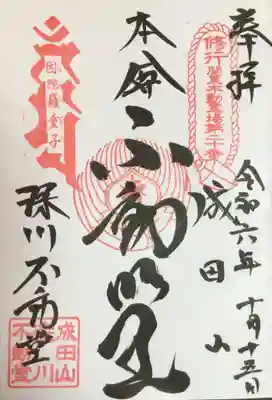 奉拝
令和六年 十月十五日
修行 第二十番
成田山
本尊不動明王
因陀羅童子
深川不動堂
成田山
深川
不動堂